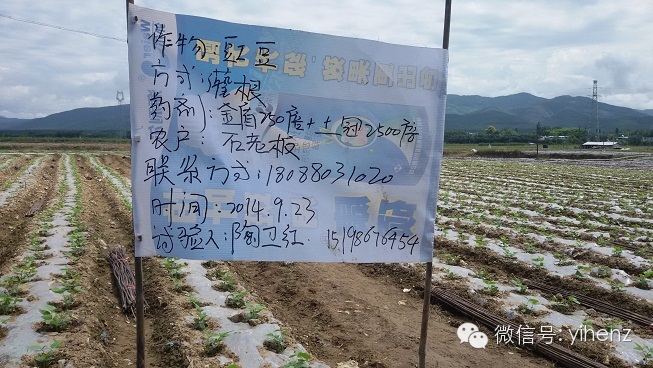 作物：红豆
方式：灌根
药剂：金盾250倍+土冠2500倍
农户：石老板
联系方式：18088031020
时间：2014.9.23
试验人：陶卫红 15198676954
微信号: yihenz